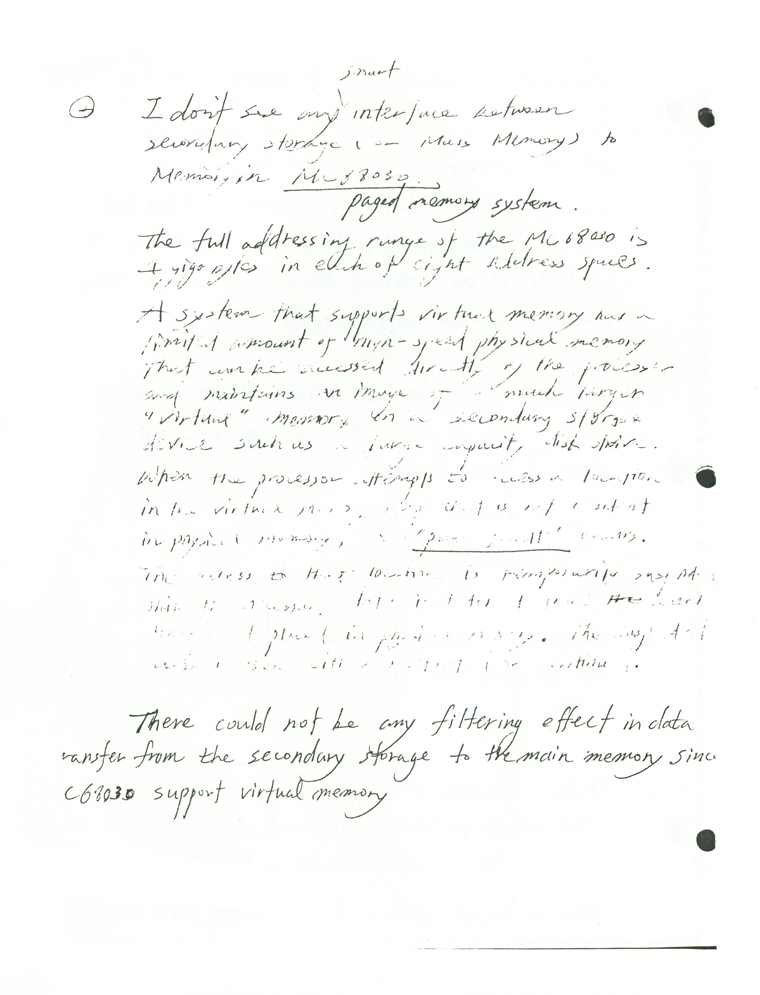 smart
I don't see any interface between
secondary storage ( or Mass Memory) to
Memory in MC68030.
paged memory system.
The full addressing range of the MC68030 is
4 gigabytes in each of eight address spaces.
A system that supports virtual memory has a
limited amount of high-speed physical memory
that can be accessed directly by the processor
and maintains an image of a much larger
"virtual" memory on a secondary storage
device such as a large capacity disk drive.
When the processor attempts to access a location
in the virtual memory map that is not resident
in physical memory, a "page fault" occurs.
The access to that location is temporarily suspended
while the necessary data is fetched from the
placed in physical memory. The suspended
access is then either restarted or continued.
There could not be any filtering effect in data
ransfer from the secondary storage to the main memory since
C68030 support virtual memory